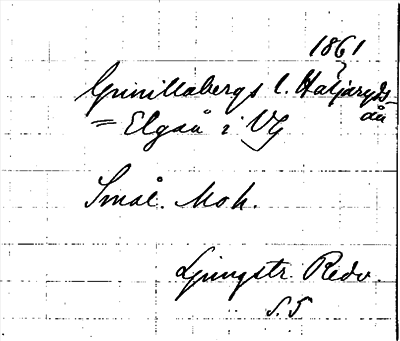 1861
Gunillabergs l. Haljaryds-
ån
= Elgån i VG
Smål. Moh.
Ljungstr. Redo.
S. 5